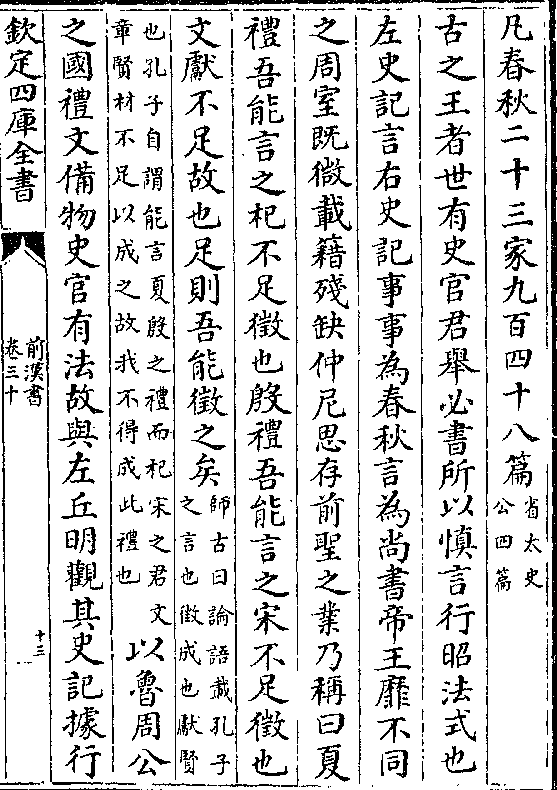 凡春秋二十三家九百四十八篇省太史
公四篇
古之王者世有史官君舉必書所以慎言行昭法式也
左史記言右史記事事為春秋言為尚書帝王靡不同
之周室既微載籍殘缺仲尼思存前聖之業乃稱曰夏
禮吾能言之杞不足徵也殷禮吾能言之宋不足徵也
文獻不足故也足則吾能徵之矣師古曰論語載孔子
之言也徵成也獻賢
也孔子自謂能言夏殷之禮而杞宋之君文
章賢材不足以成之故我不得成此禮也以魯周公
之國禮文備物史官有法故與左丘明觀其史記據行
欽定四庫全書
前漢書
卷三十
十三